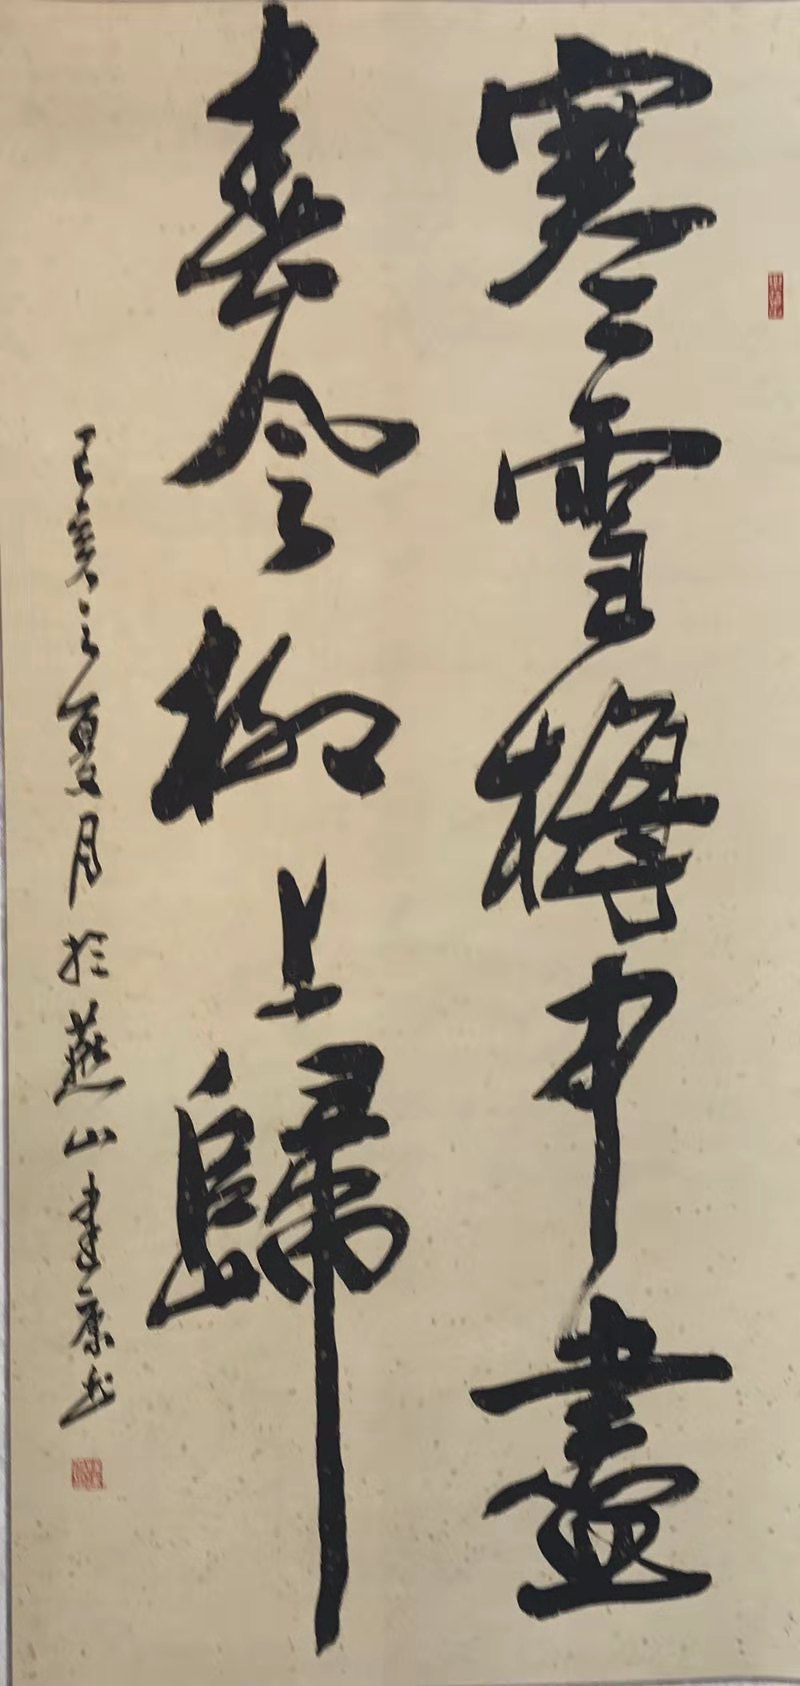 寒雪梅中盡
春風柳上歸
己亥之夏月於燕山建康书